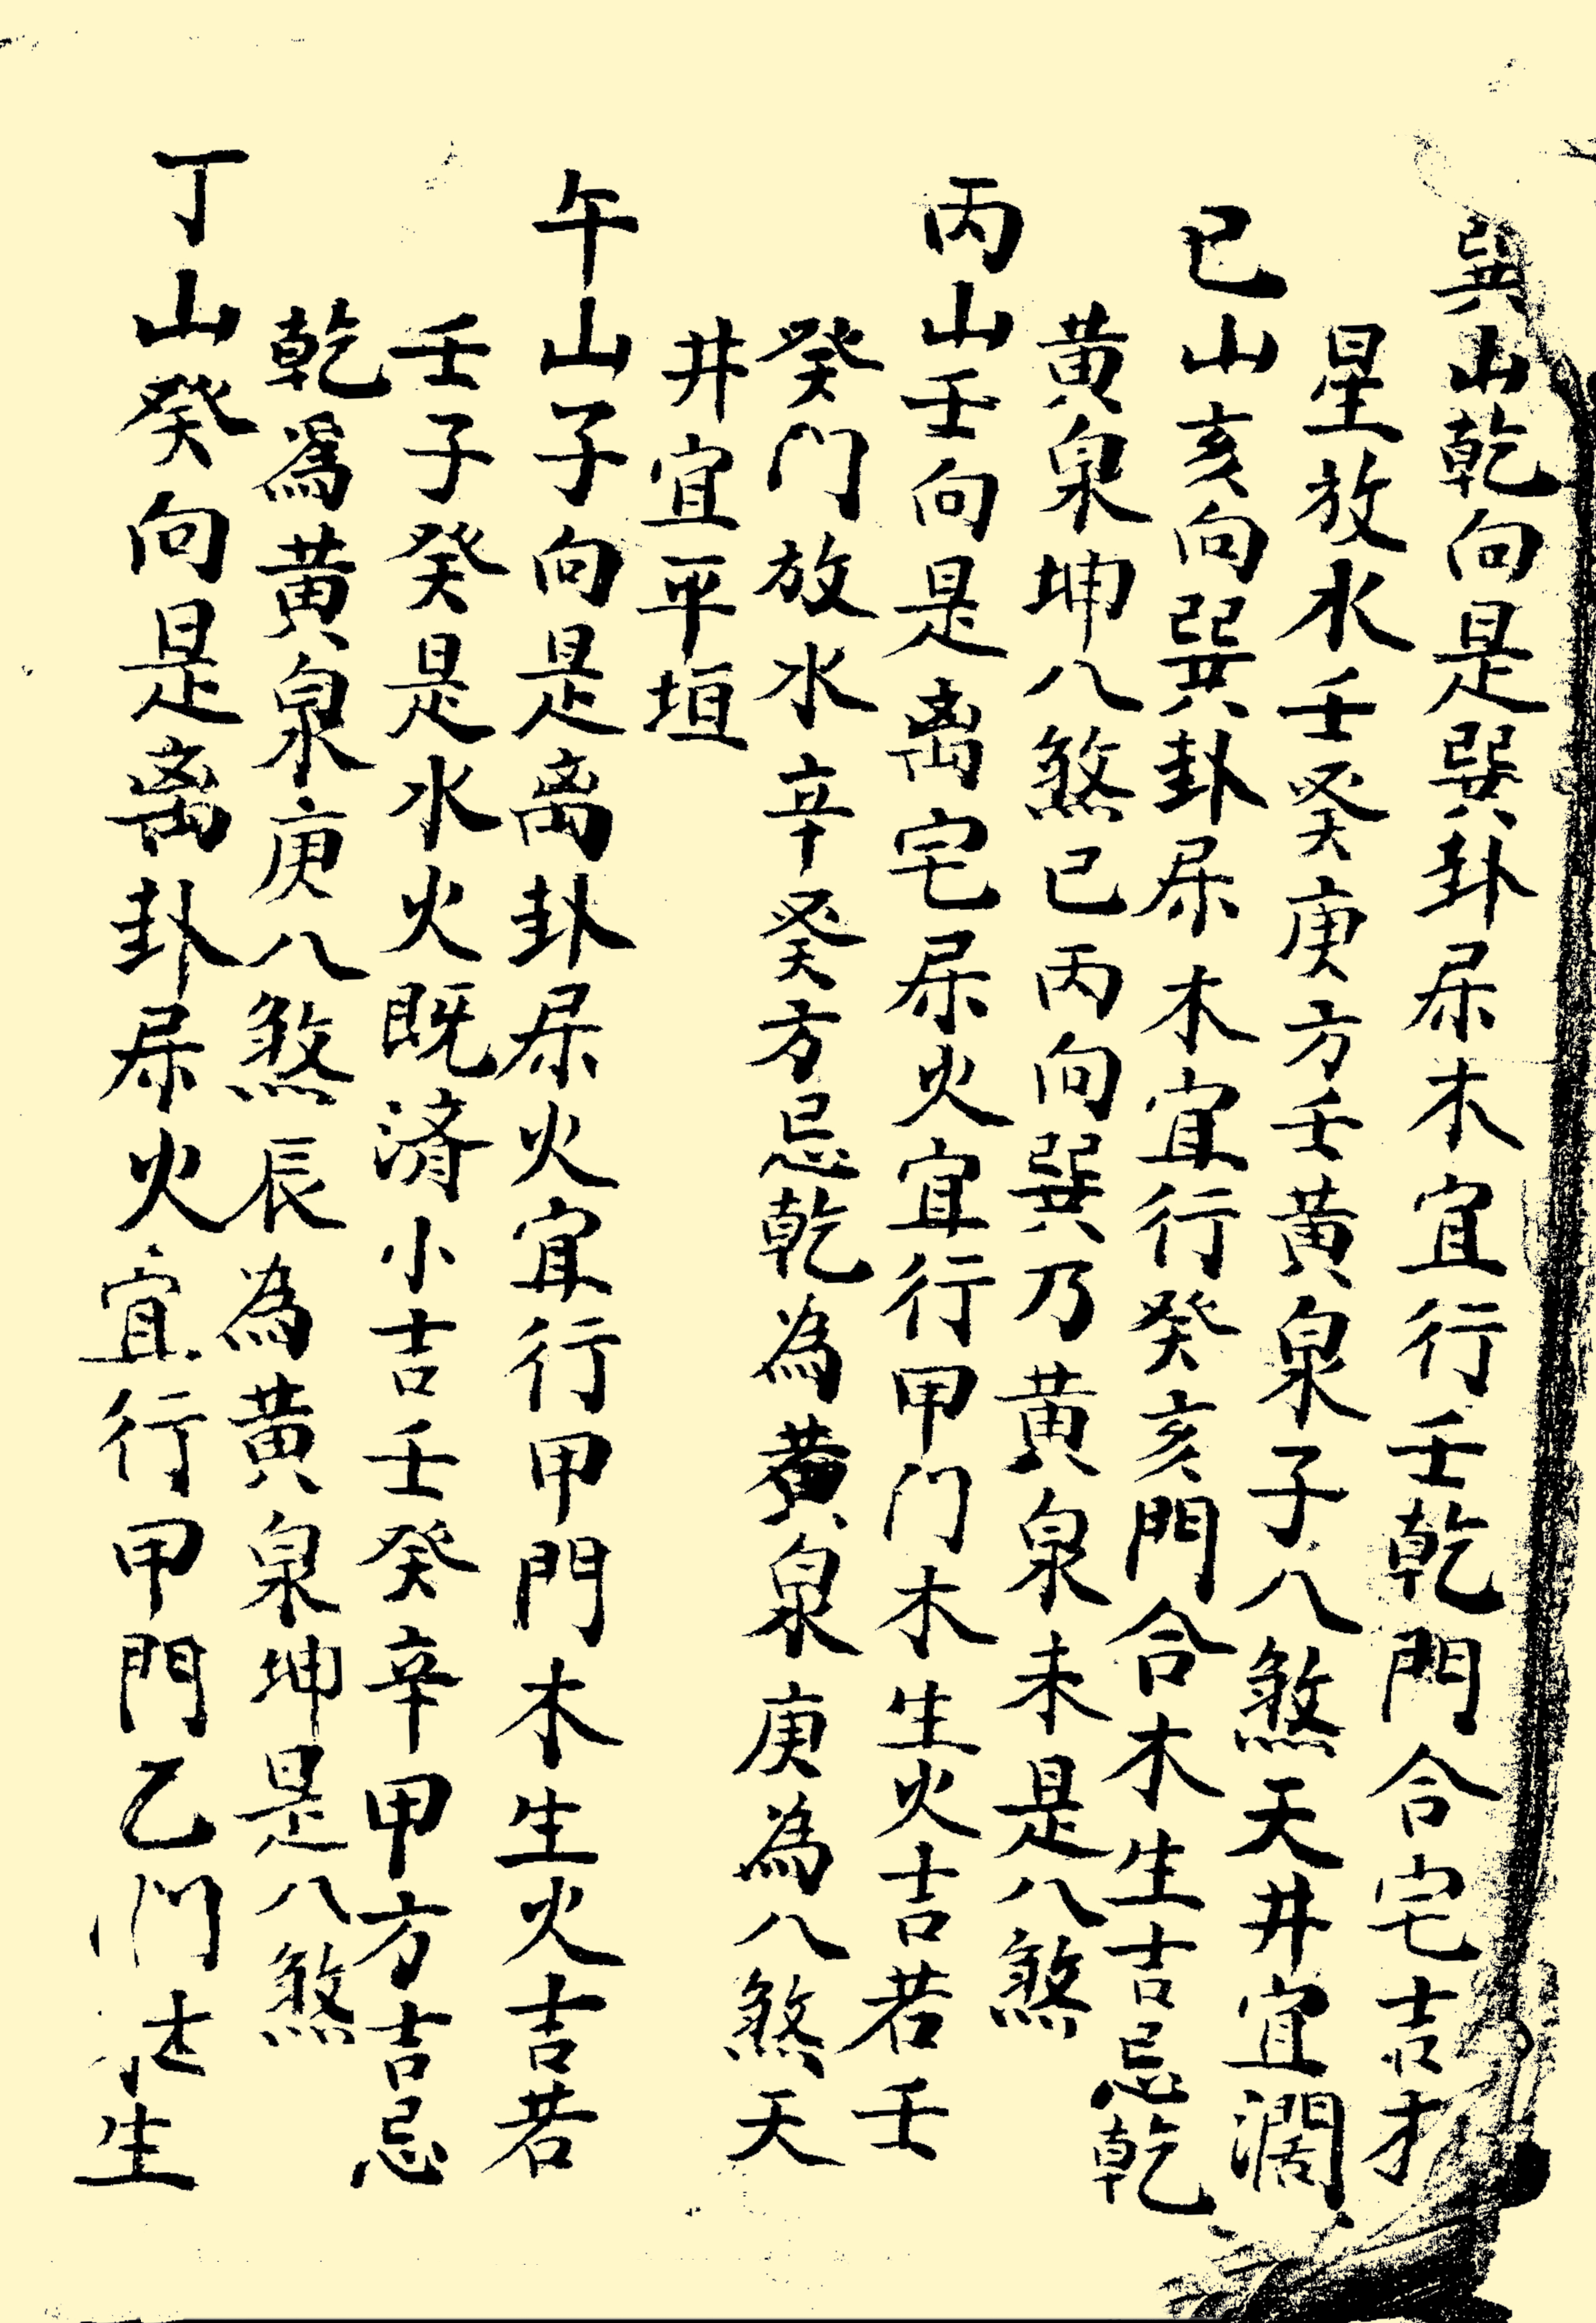 巽山乾向是巽卦屬木宜行壬乾門合宅吉才
星放水壬癸庚方壬黄泉子八煞天井宜濶
巳山亥向巽卦屬木宜行癸亥門合木生吉忌乾
黄泉坤八煞巳丙向巽乃黄泉未是八煞
丙山壬向是离宅屬火宜行甲门木生火吉若壬
癸门放水辛癸方忌乾為黄泉庚為八煞天
井宜平垣
午山子向是离卦屬火宜行甲門木生火吉若
壬子癸是水火既济小吉壬癸辛甲方吉忌
乾爲黄泉庚八煞辰為黄泉坤是八煞
丁山癸向是离卦屬火宜行甲門乙门生